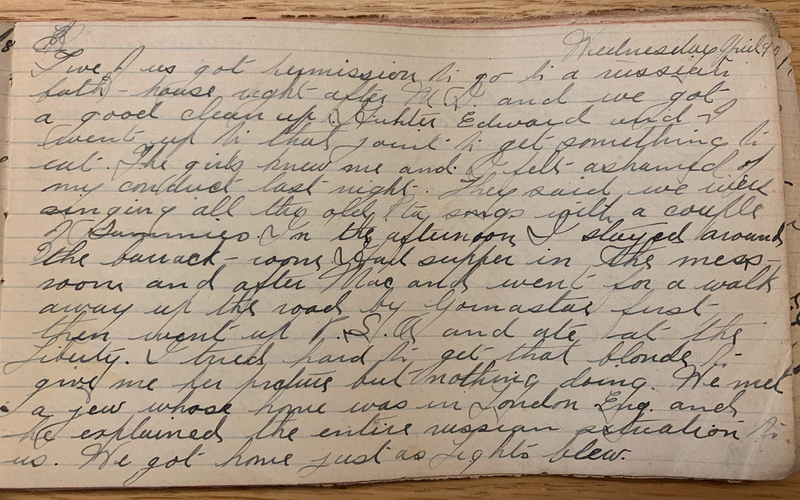 Wednesday April 9
Five of us got permission to go to a russian
bath-house right after M.D. and we got
a good clean up. Edward and I
went up to that joint to get something to
eat. The girls knew me and I felt ashamed of
my conduct last night. They said we were
singing all the old songs with a couple
of Sammies. In the afternoon I stayed around
the barrack-room. Had supper in the mess-
room and after Mac and I went for a walk
away up the road by first
then went up and ate at the
Liberty. I tried hard to get that blonde to
give me her picture but nothing doing. We met
a jew whose home was in London Eng. and
he explained the entire russian situation to
us. We got home just as Lights blew.